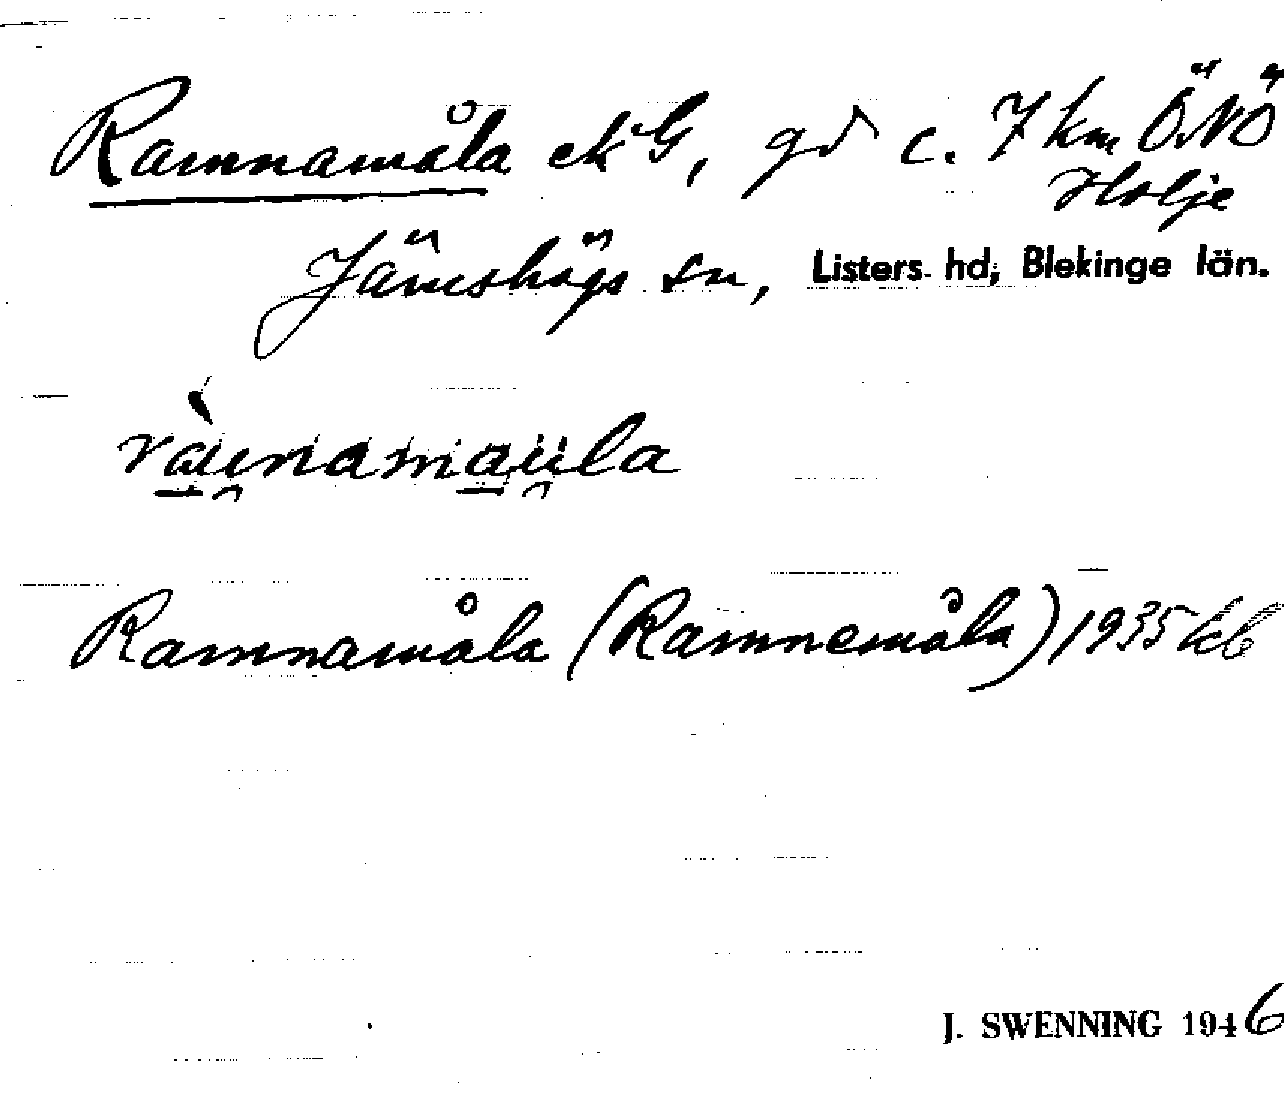 Ramnamåla ek G, gd c. 7 km ÖNÖ
Holje
Jämshögs sn, Listers hd, Blekinge län.
ràu̯namaü̯la
Ramnamåla (Ramnemåla) 1935 kb
J. SWENNING 1946